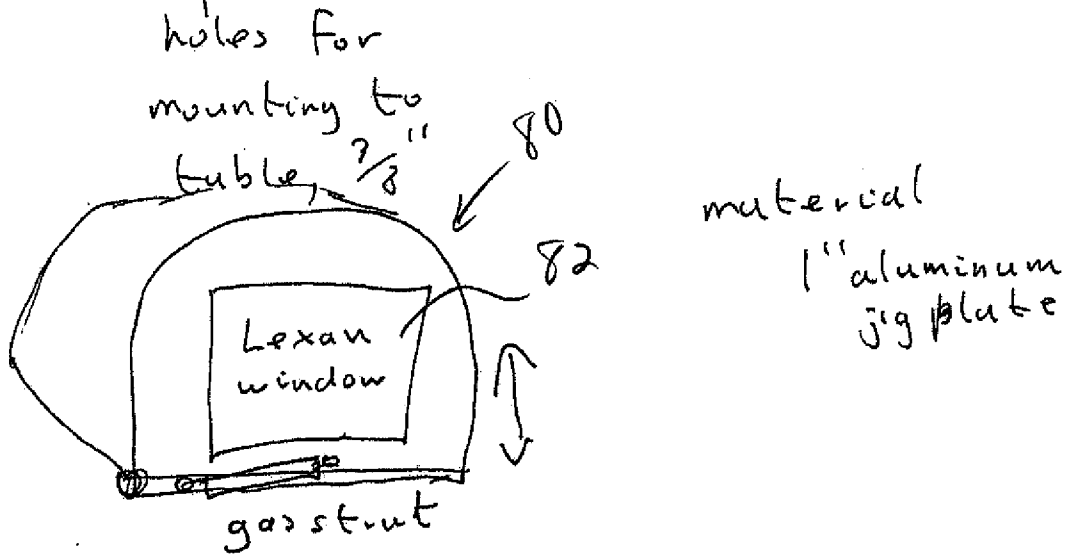 holes for
mounting to
table, 3/8"
80
material
1" aluminum
jig plate
82
Lexan
window
gas strut